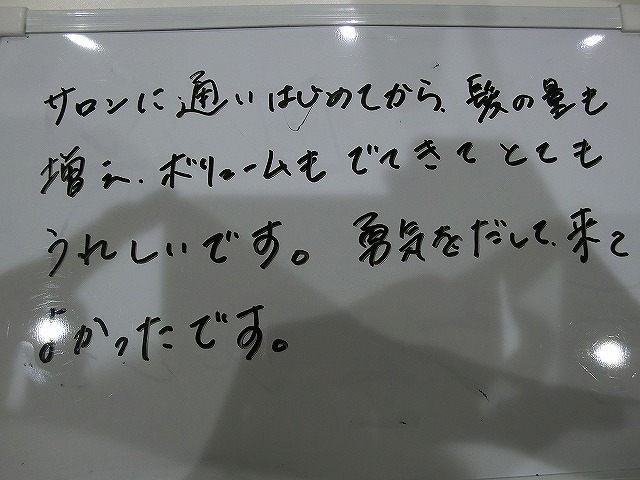 サロンに通いはじめてから、髪の量も
増え、ボリュームもでてきてとても
うれしいです。勇気をだして、来て
よかったです。